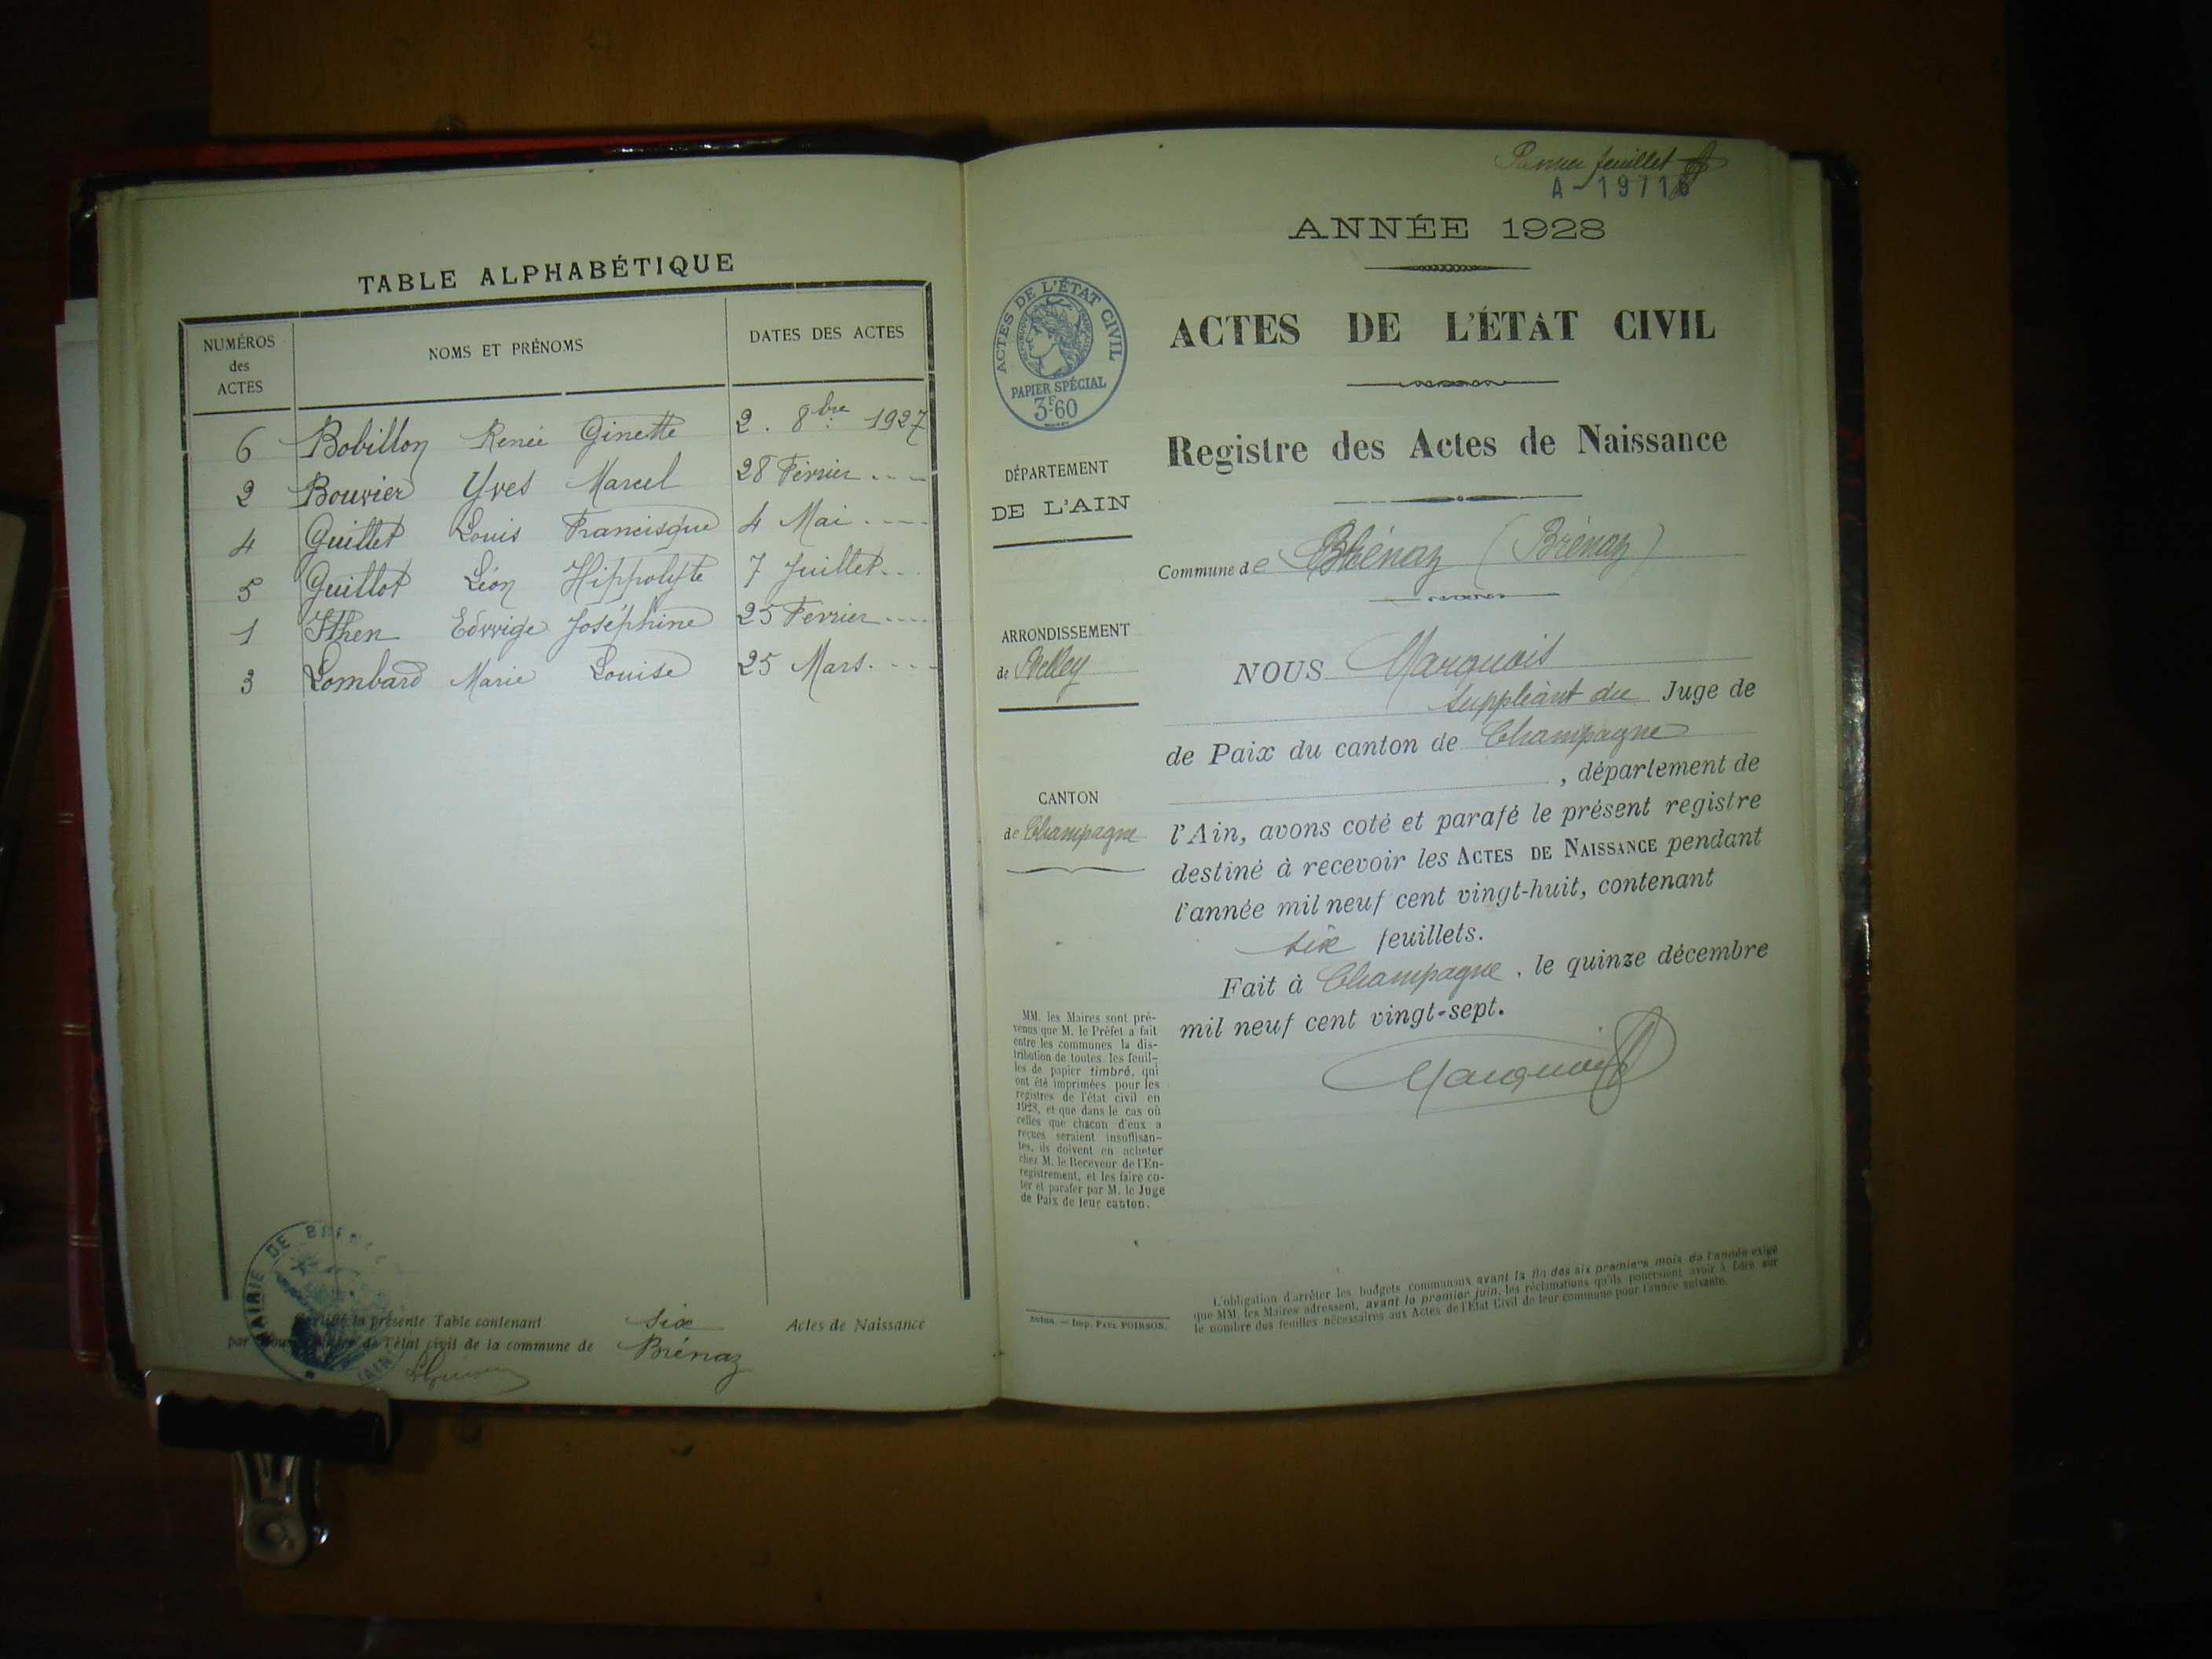 TABLE ALPHABÉTIQUE
NUMÉROS des ACTES NOMS ET PRÉNOMS DATES DES ACTES
6 Bobillon Renée Ginette 2. 8bre 1927
2 Bouvier Yves Marcel 28 Février
4 Guillet Louis Francisque 4 Mai
5 Guillot Léon Hippolyte 7 Juillet
1 Ithen Edvvige Joséphine 25 Février
3 Lombard Marie Louise 25 Mars
MAIRIE DE
AIN
la présente Table contenant six Actes de Naissance
par de l'état civil de la commune de Brénaz
Premier feuillet
A-19716
ANNÉE 1928
ACTES DE L'ÉTAT CIVIL
PAPIER SPÉCIAL
3F60
ACTES DE L'ÉTAT CIVIL
Registre des Actes de Naissance
DÉPARTEMENT
DE L'AIN
Commune de (Brénaz)
ARRONDISSEMENT
de Belley
CANTON
de Champagne
NOUS Marquois
suppléant du Juge de
de Paix du canton de Champagne
, département de
l'Ain, avons coté et parafé le présent registre
destiné à recevoir les ACTES DE NAISSANCE pendant
l'année mil neuf cent vingt-huit, contenant
six feuillets.
Fait à Champagne, le quinze décembre
mil neuf cent vingt-sept.
Marquois
MM. les Maires sont pré-
venus que M. le Préfet a fait
entre les communes la dis-
tribution de toutes les feuil-
les de papier timbré, qui
ont été imprimées pour les
registres de l'état civil en
1928, et que dans le cas où
celles que chacun d'eux a
reçues seraient insuffisan-
tes, ils doivent en acheter
chez M. le Receveur de l'En-
registrement, et les faire co-
ter et parafer par M. le Juge
de Paix de leur canton.
Imp. PAUL POIRSON.
L'obligation d'arrêter les budgets communaux avant la fin des six premiers mois de l'année exige
que MM. les Maires adressent, avant le premier juin, les réclamations qu'ils pourraient avoir à faire sur
le nombre des feuilles nécessaires aux Actes de l'État Civil de leur commune pour l'année suivante.